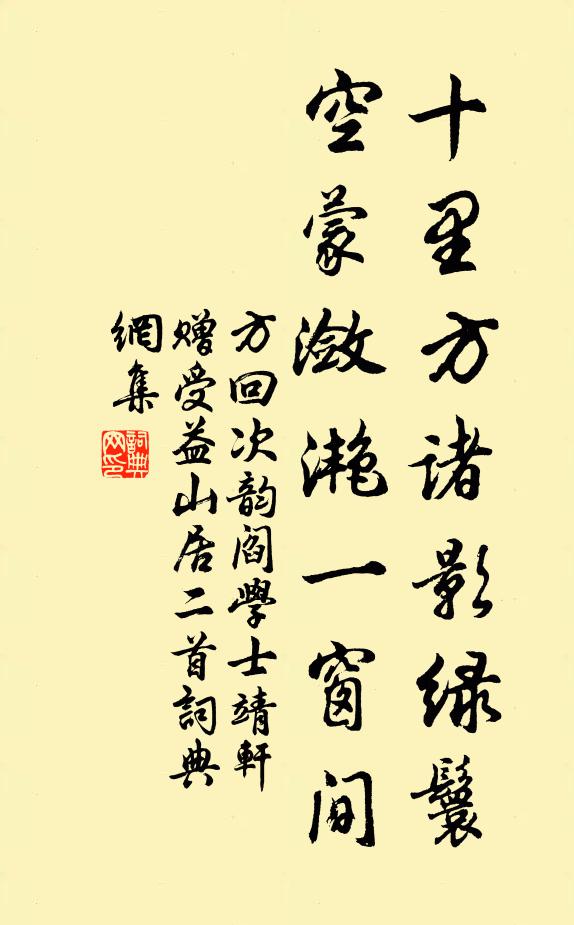 十里方诸影绿鬟
空蒙潋滟一窗间
方回次韵阎学士靖轩
赠受益山居二首词典
網集
詞典
网印